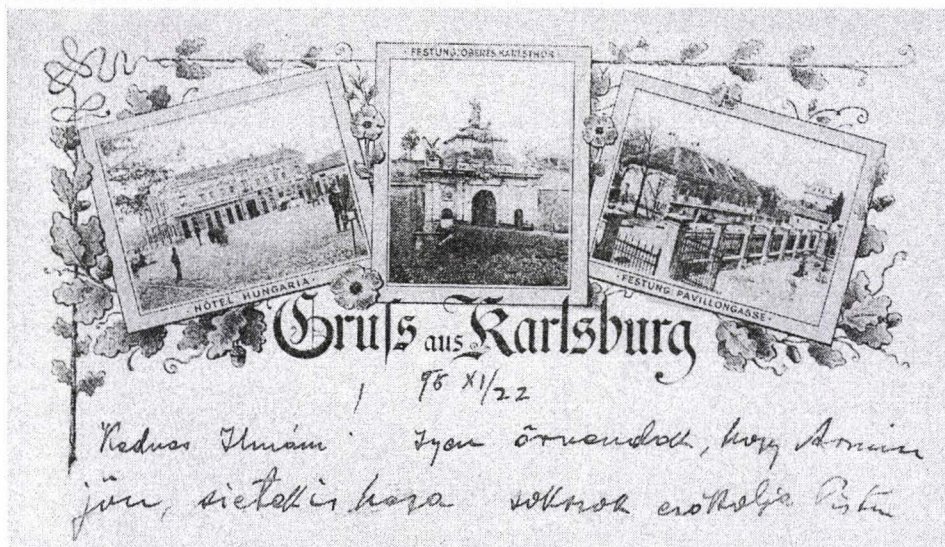 · FESTUNG: OBERES KARLSTHOR ·
HÔTEL HUNGARIA
· FESTUNG: PAVILLONGASSE ·
Gruſs aus Karlsburg
98 XI/22
Kedves Ilmám! Igen örvendek, hogy Armin
jön, sietek is haza sokszor csókolja Pista